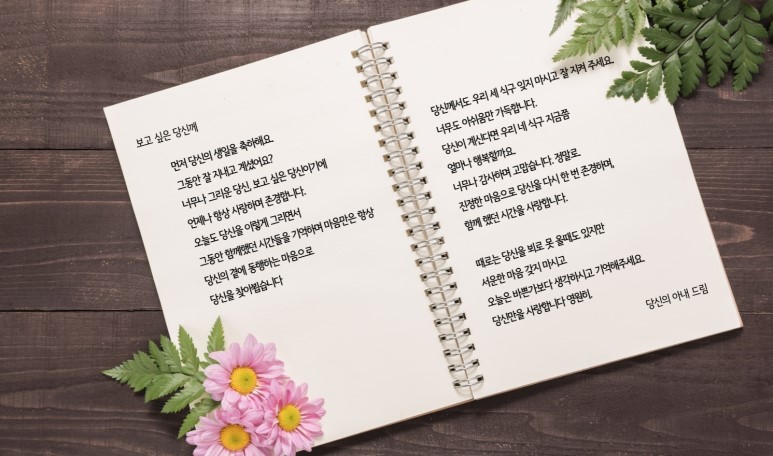 보고 싶은 당신께
먼저 당신의 생일을 축하해요
그동안 잘 지내고 계셨어요?
너무나 그리운 당신, 보고 싶은 당신이기에
언제나 항상 사랑하며 존경합니다.
오늘도 당신을 이렇게 그리면서
그동안 함께했던 시간들을 기억하며 마음만은 항상
당신의 곁에 동행하는 마음으로
당신을 찾아뵙습니다
당신께서도 우리 세 식구 잊지 마시고 잘 지켜 주세요.
너무도 아쉬움만 가득합니다.
당신이 계신다면 우리 네 식구 지금쯤
얼마나 행복할까요.
너무나 감사하며 고맙습니다. 정말로
진정한 마음으로 당신을 다시 한 번 존경하며,
함께 했던 시간을 사랑합니다.
때로는 당신을 뵈로 못 올때도 있지만
서운한 마음 갖지 마시고
오늘은 바쁜가보다 생각하시고 기억해주세요.
당신만을 사랑합니다 영원히.
당신의 아내 드림